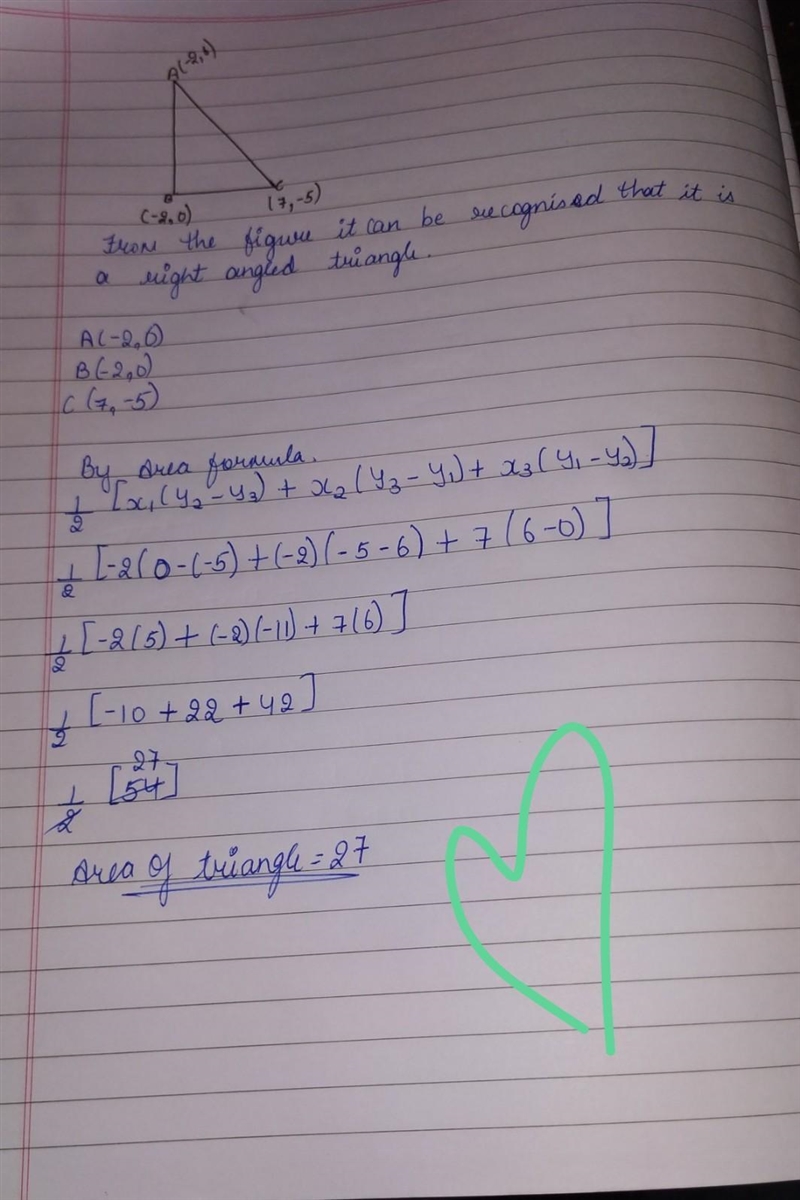 A(-2,6)
B
C
(-2,0)
(7,-5)
From the figure it can be recognised that it is
a right angled triangle.
A(-2,6)
B(-2,0)
C (7,-5)
By Area formula.
1/2 [x₁(y₂-y₃) + x₂(y₃-y₁)+ x₃(y₁-y₂)]
1/2 [-2(0-(-5)+(-2)(-5-6)+7(6-0)]
1/2 [-2(5)+(-2)(-11)+7(6)]
1/2 [-10+22+42]
27
1/2 [54]
Area of triangle=27